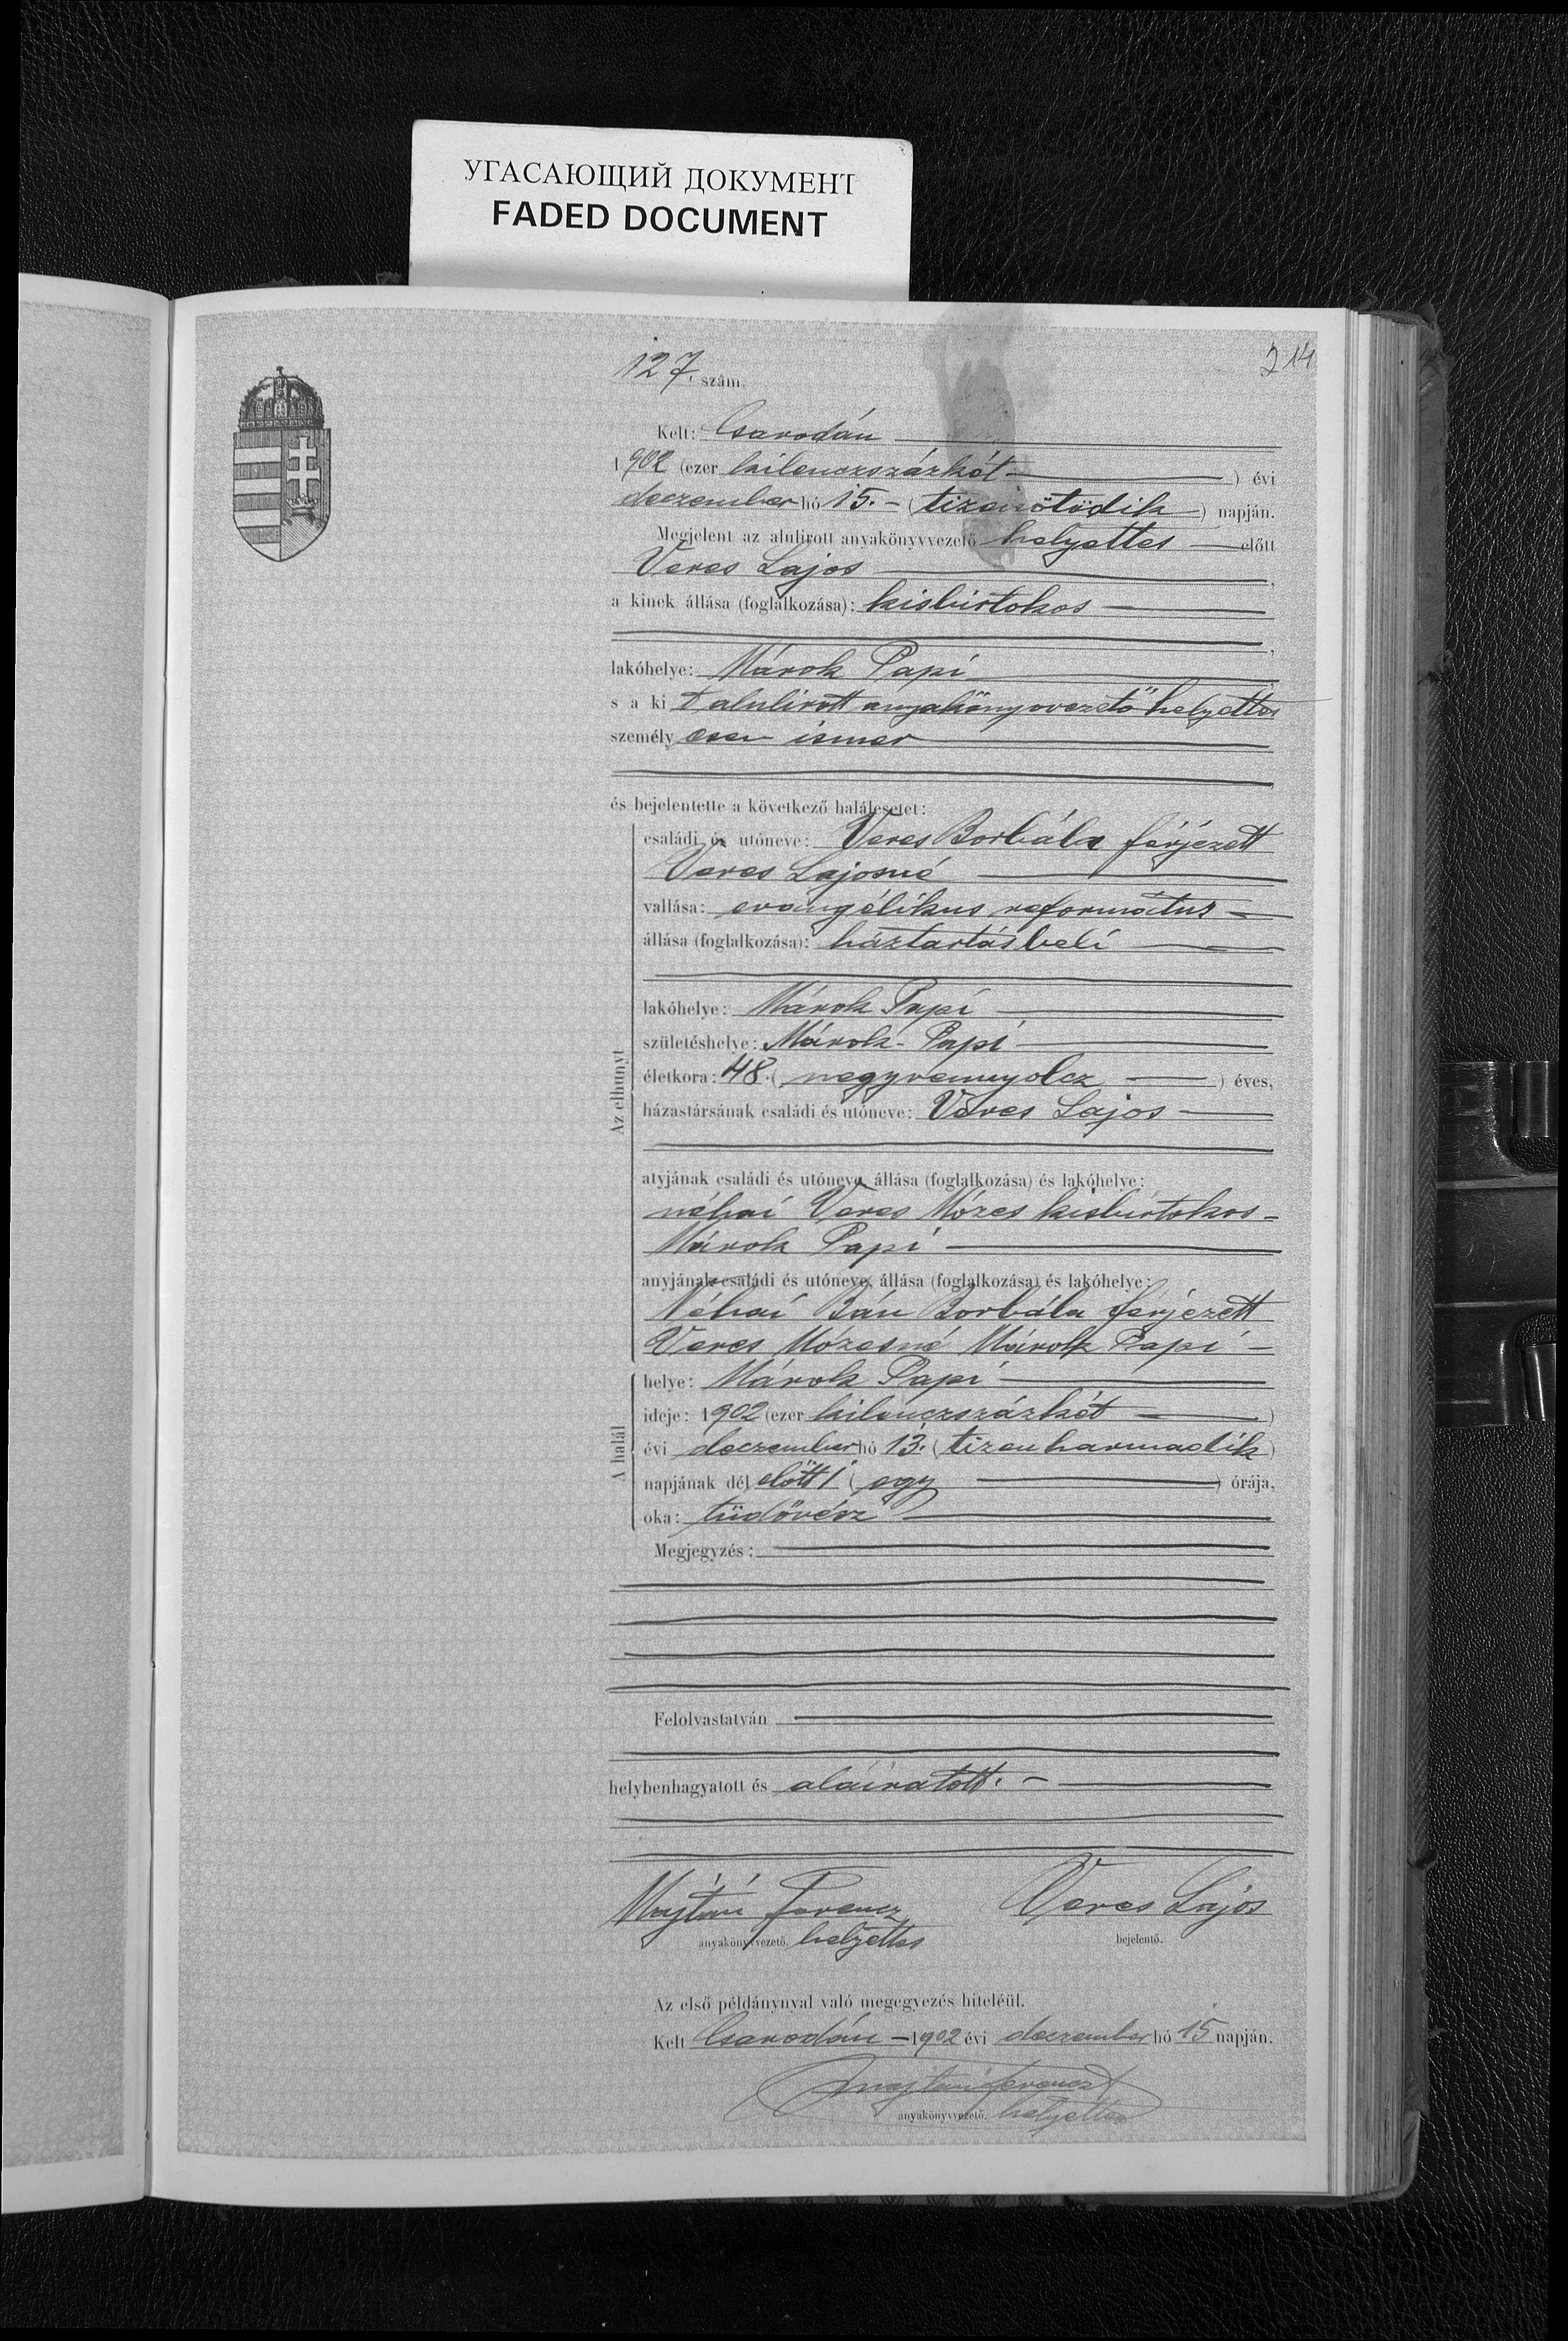 УГАСАЮЩИЙ ДОКУМЕНТ
FADED DOCUMENT
214
127. szám.
Kelt: Csarodán
1902 (ezer kilenczszázkét ) évi
deczember hó 15. - (tizenötödik) napján.
Megjelent az alulirott anyakönyvvezető helyettes előtt
Veres Lajos ,
a kinek állása (foglalkozása): kisbirtokos
,
lakóhelye: Márok Papi
s a ki t alulirott anyakönyvvezető helyettes
személy esen ismer
és bejelentette a következő halálesetet:
Az elhunyt
családi és utóneve: Veres Borbála férjezett
Veres Lajosné
vallása: evangélikus református -
állása (foglalkozása): háztartásbeli
lakóhelye: Márok Papi
születéshelye: Márok-Papi
életkora: 48. (negyvennyolcz ) éves,
házastársának családi és utóneve: Veres Lajos
atyjának családi és utóneve, állása (foglalkozása) és lakóhelye:
néhai Veres Mózes kisbirtokos -
Márok Papi
anyjának családi és utóneve, állása (foglalkozása) és lakóhelye:
Néhai Bán Borbála férjezett
Veres Mózesné Márok Papi -
A halál
helye: Márok Papi
ideje: 1902 (ezer kilenczszázkét )
évi deczember hó 13. (tizenharmadik)
napjának dél előtt 1 (egy ) órája,
oka: tüdővész
Megjegyzés:
Felolvastatván
helybenhagyatott és aláiratott. -
Majténi Ferencz Veres Lajos
anyakönyvvezető. helyettes bejelentő.
Az első példánynyal való megegyezés hiteléül.
Kelt Csarodán - 1902 évi deczember hó 15 napján.
Majténi Ferencz
anyakönyvvezető. helyettes